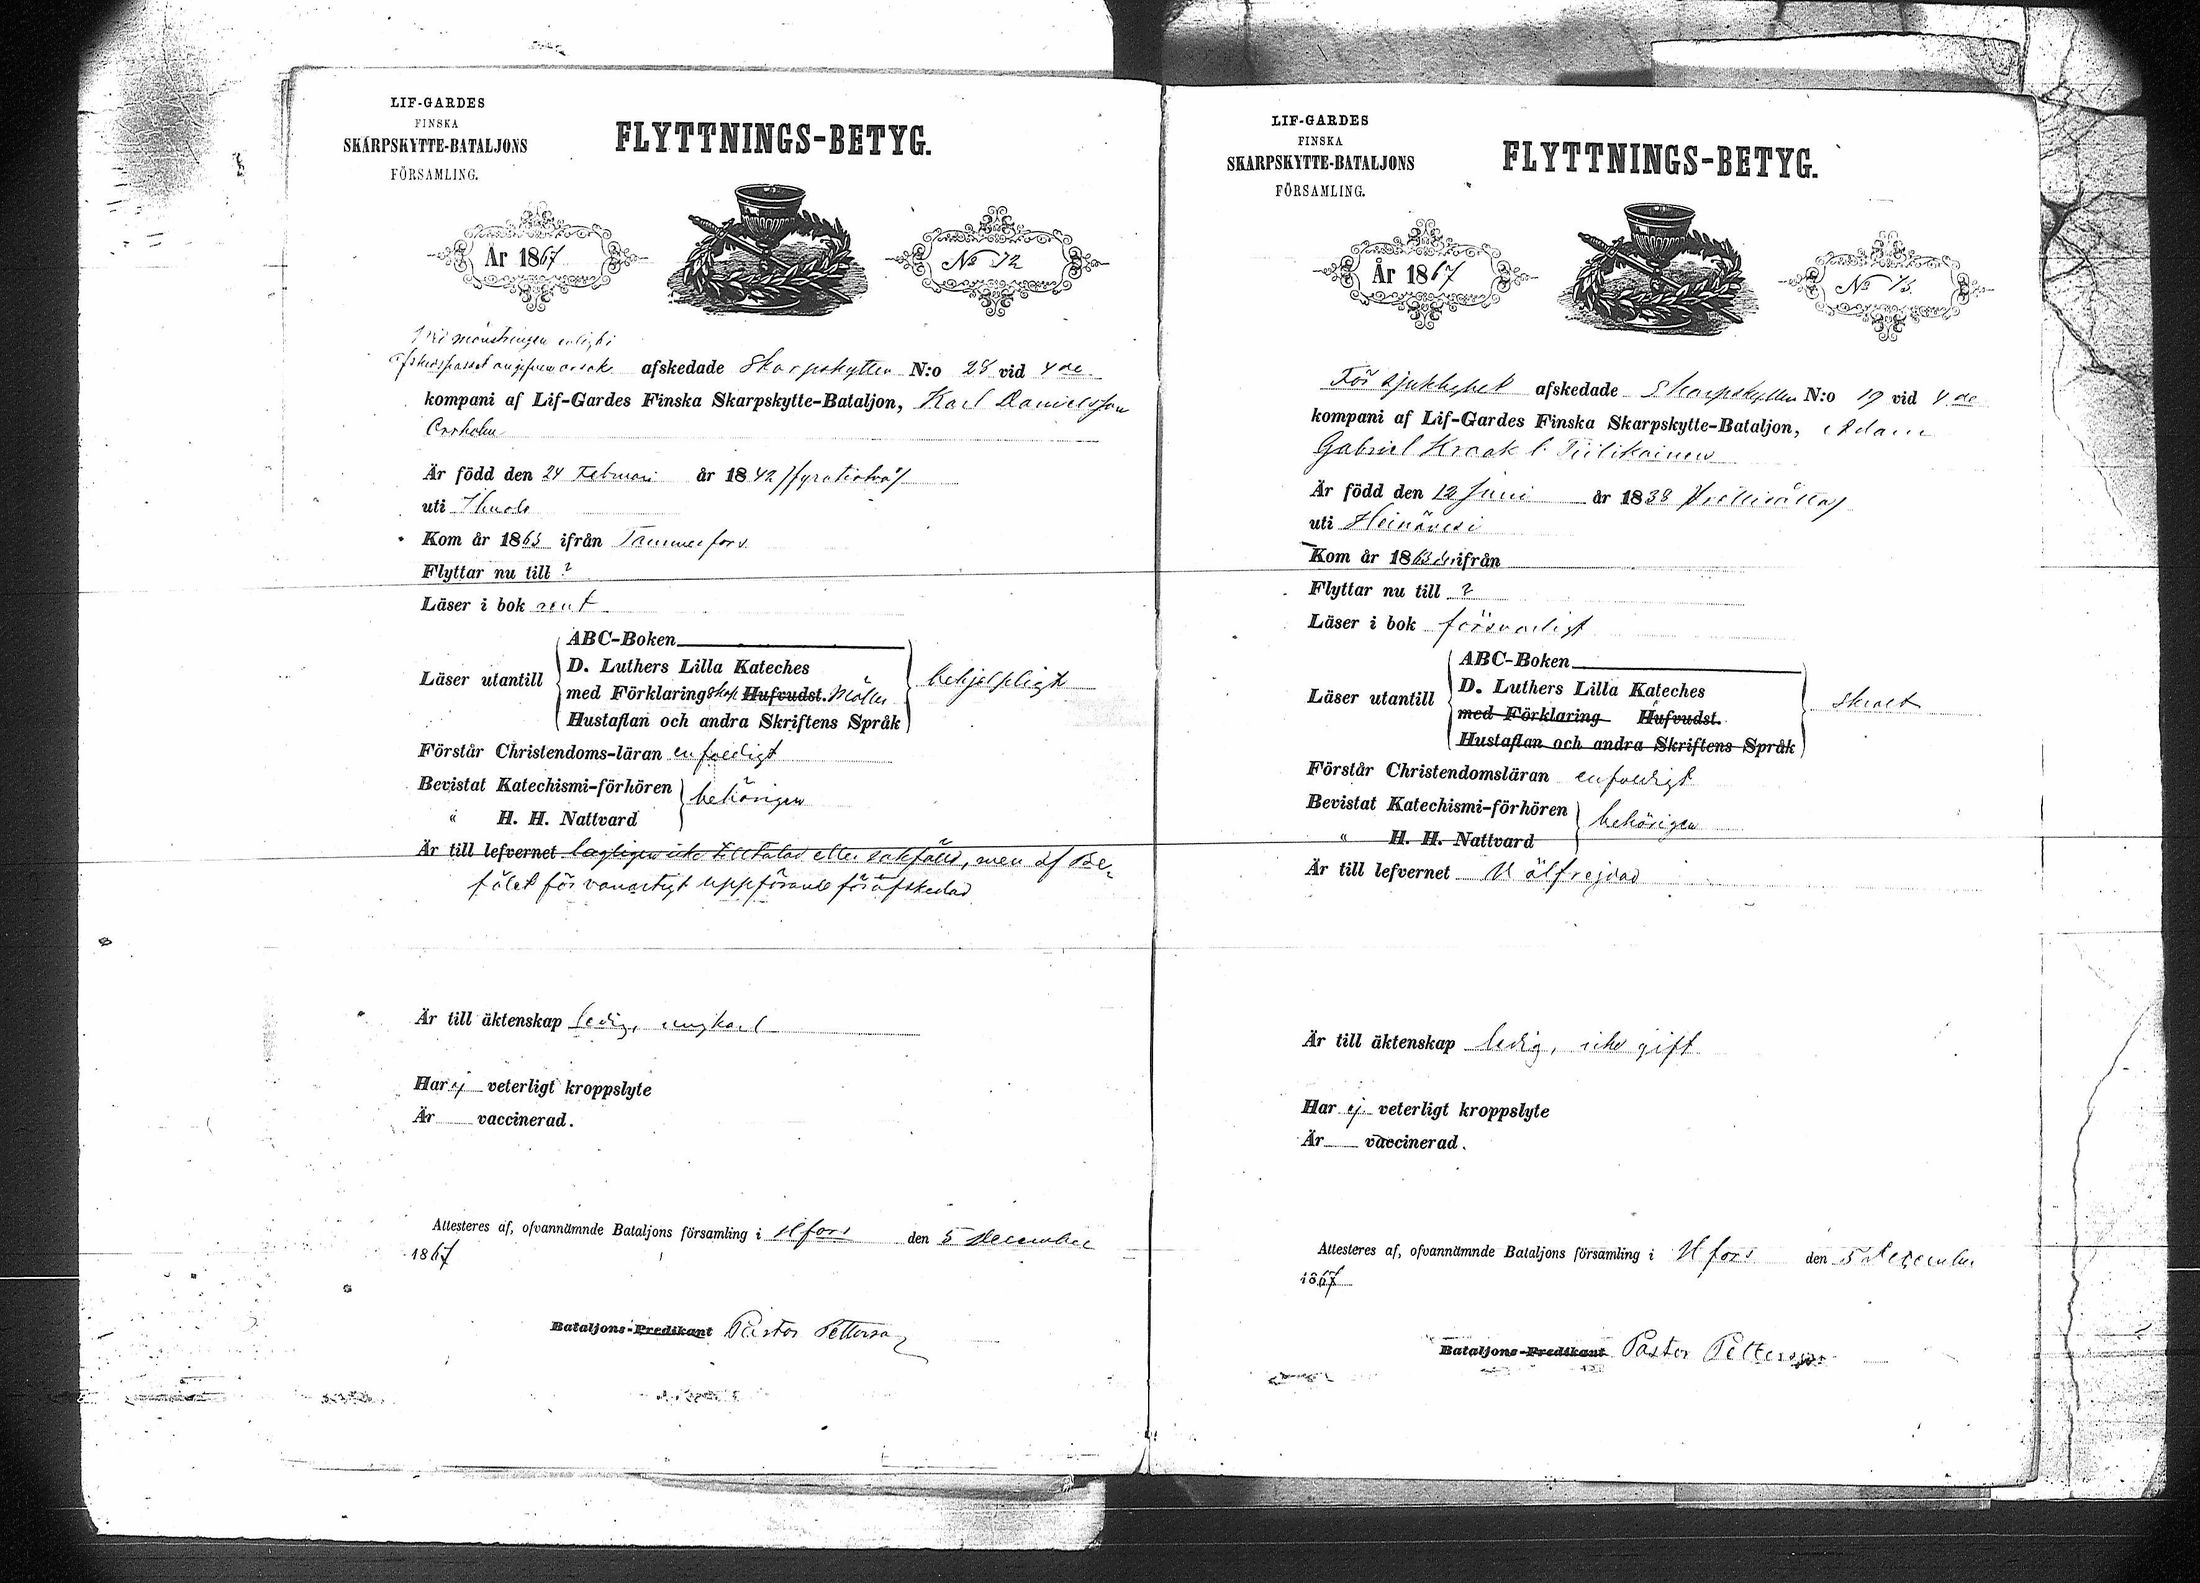 LIF-GARDES
FINSKA
SKARPSKYTTE-BATALJONS
FÖRSAMLING.
FLYTTNINGS-BETYG.
År 1867
No 12
Vid mönstringen enligt i
afskedspasset angifven orsak afskedade Skarpskytten N:o 28 vid 4de
kompani af Lif-Gardes Finska Skarpskytte-Bataljon, Karl Danielsson
Orrholm
Är född den 24 Februari år 1842 /fyratiotvå/
uti
Kom år 1863 ifrån Tammerfors
Flyttar nu till ?
Läser i bok rent
ABC-Boken
Läser utantill
D. Luthers Lilla Kateches
med Förklaring Hufvudst. Möller
Hustaflan och andra Skriftens Språk
behjelpligt
Förstår Christendoms-läran enfaldigt
Bevistat Katechismi-förhören
" H. H. Nattvard
behörigen
Är till lefvernet lagligen icke tilltalad eller sakfälld, men af Be-
fälet för vanartigt uppförande för afskedad
Är till äktenskap ledig, ungkarl
Har ej veterligt kroppslyte
Är vaccinerad.
Attesteres af, ofvannämnde Bataljons församling i Hfors den 5 December
1867
Bataljons-Predikant Pastor Petterson
LIF-GARDES
FINSKA
SKARPSKYTTE-BATALJONS
FÖRSAMLING.
FLYTTNINGS-BETYG.
År 1867
No 13.
För sjuklighet afskedade Skarpskytten N:o 19 vid 4de
kompani af Lif-Gardes Finska Skarpskytte-Bataljon, Adam
Gabriel Kraak l. Tiilikainen
Är född den 12 Juni år 1838 /trettioåtta/
uti Heinävesi
Kom år 1863 ifrån
Flyttar nu till ?
Läser i bok försvarligt
ABC-Boken
Läser utantill
D. Luthers Lilla Kateches
med Förklaring Hufvudst.
Hustaflan och andra Skriftens Språk
svagt
Förstår Christendomsläran enfaldigt
Bevistat Katechismi-förhören
" H. H. Nattvard
behörigen
Är till lefvernet Välfrejdad
Är till äktenskap ledig, icke gift
Har ej veterligt kroppslyte
Är vaccinerad.
Attesteres af, ofvannämnde Bataljons församling i Hfors den 5 December
1867
Bataljons-Predikant Pastor Petterson